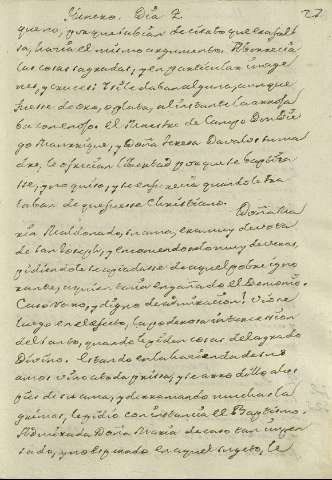 Henero. Dia 2.
27
queno, porque sabian de cierto que era fal
sa, haria el mismo argumento. Aborrecia
las cosas sagradas, y en particular image
nes, y cruces: y si le daban alguna, aunque
fuesse de oro, o plata, al instante la arroja
ba con enojo. El Maestre de Campo Don Die
go Manrrique, y Doña Teresa Davalos su ma
dre, le ofrecian libertad porque se baptiza
sse, y no quiso, y se enfurecia quando le tra
taban de que fuesse Christiano.
Doña Ma
ria Maldonado, su ama, era muy devota
de San Joseph, y encomendóselo muy de veras,
pidiendole se apiadasse de aquel pobre igno
rante, a quien tenia engañado el Demonio.
Caso raro, y digno de admiracion! Viose
luego en el efecto, la poderosa intercession
del Santo, quando le piden cosas del agrado
Divino. Estando en la hacienda de sus
amos vino un dia a prissa, y se arrodilló a los
pies de su ama, y derramando muchas la
grimas, le pidio con instancia el Baptismo.
Admirada Doña Maria de caso tan impen
sado, y no esperado en aquel sugeto, le